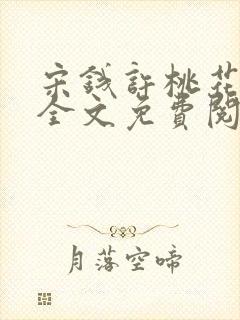 宋錢許桃花
全文免費閱
月落空啼